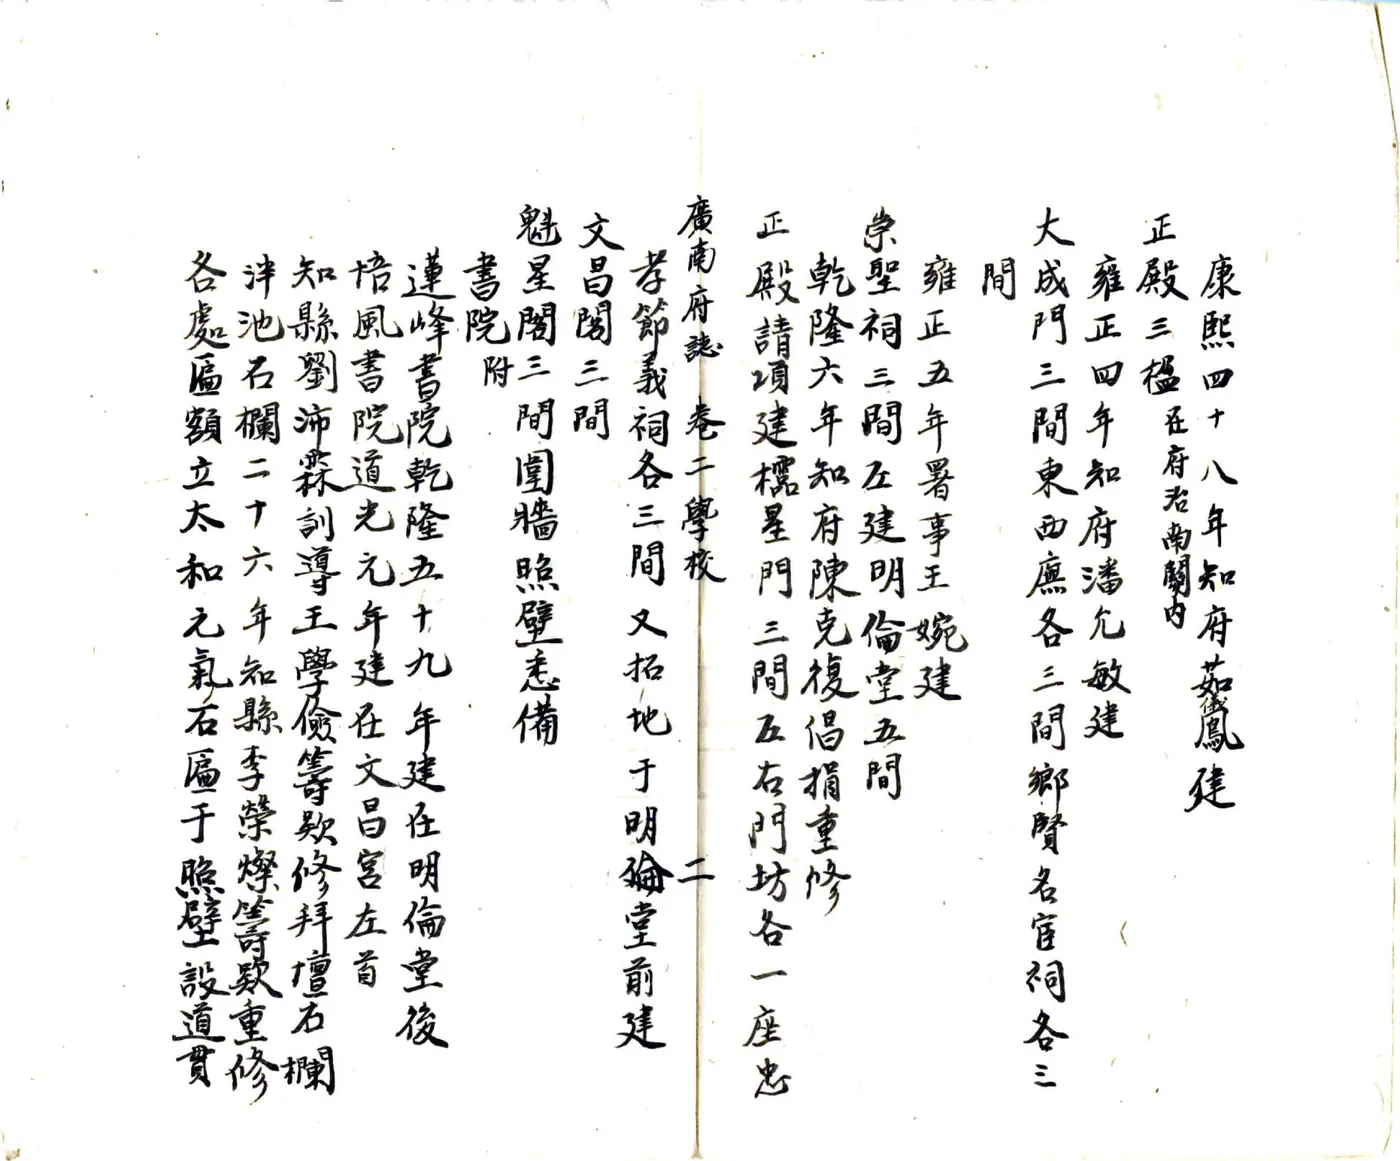 康熙四十八年知府茹儀鳳建
正殿三楹在府治南關內
雍正四年知府潘允敏建
大成門三間東西廡各三間鄉賢名宦祠各三
間
雍正五年署事王婉建
崇聖祠三間左建明倫堂五間
乾隆六年知府陳克復倡捐重修
正殿請項建櫺星門三間左右門坊各一座忠
廣南府誌 卷二學校 二
孝節義祠各三間又拓地于明倫堂前建
文昌閣三間
魁星閣三間圍牆照壁悉備
書院附
蓮峰書院乾隆五十九年建在明倫堂後
悟風書院道光元年建在文昌宮左首
知縣劉沛霖訓導王學儉籌欵修拜壇石欄
泮池石欄二十六年知縣李榮燦籌欵重修
各處匾額立太和元氣石匾于照壁設道貫